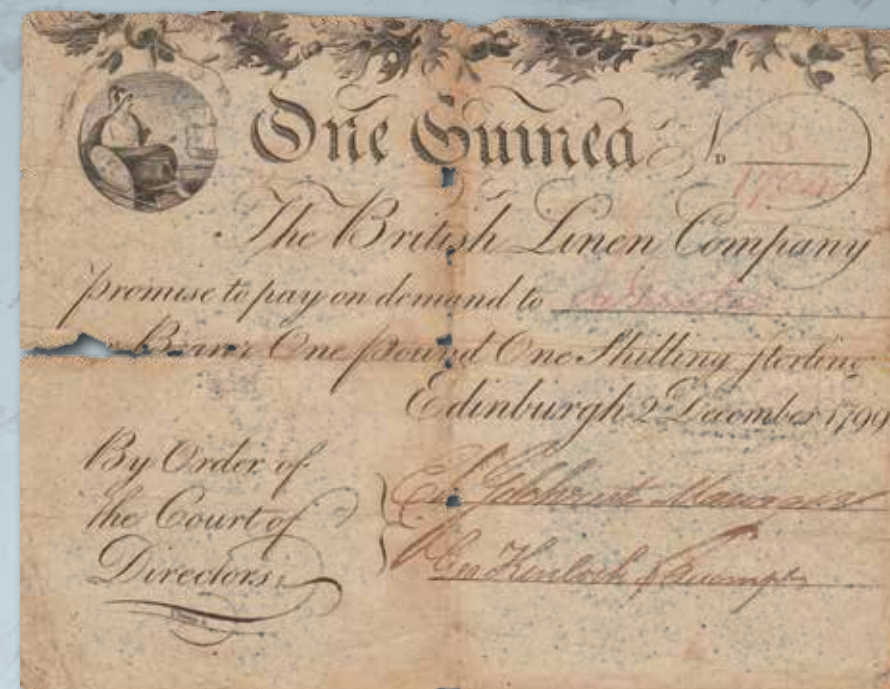 One Guinea No
The British Linen Company
promise to pay on demand to
Bearer One pound One Shilling sterling
Edinburgh 2 December 1799
By Order of
the Court of
Directors,
Manager
Kinloch